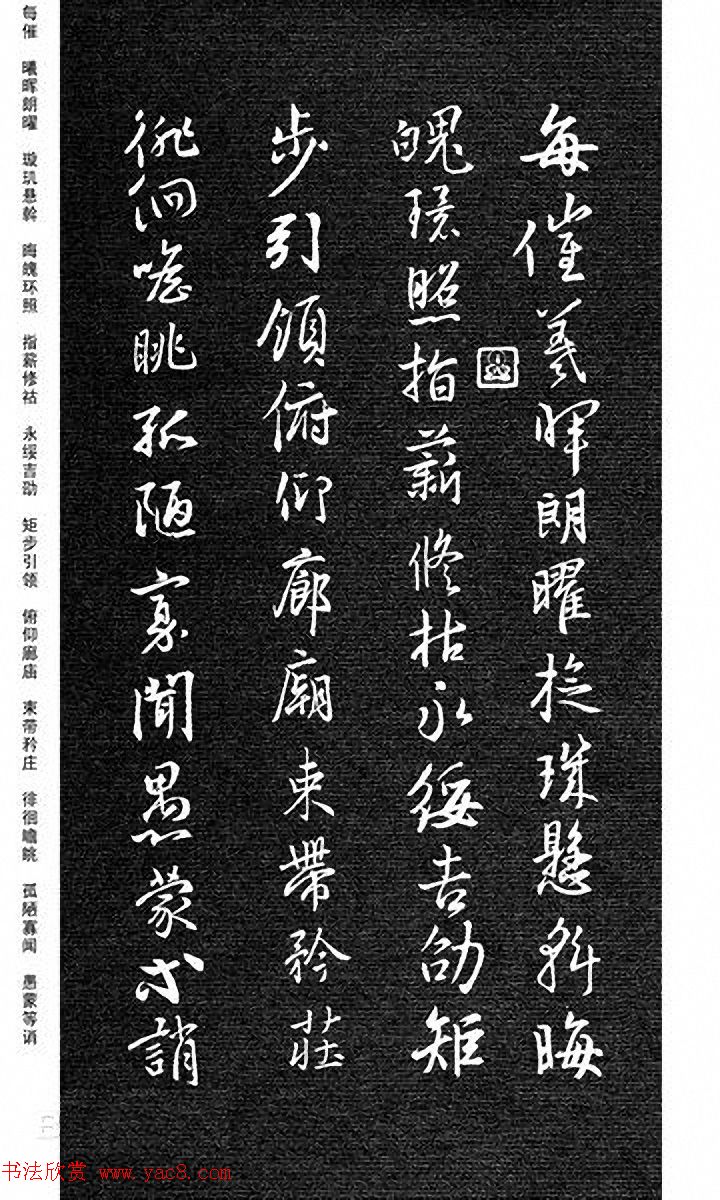 每催羲暉朗曜旋珠懸斡晦
魄環照指薪修祜永綏吉劭矩
步引領俯仰廊廟束帶矜莊
徘徊瞻眺孤陋寡聞愚蒙等誚
每催 曦晖朗曜 璇玑悬斡 晦魄环照 指薪修祜 永绥吉劭 矩步引领 俯仰廊庙 束带矜庄 徘徊瞻眺 孤陋寡闻 愚蒙等诮
书法欣赏 www.yac8.com